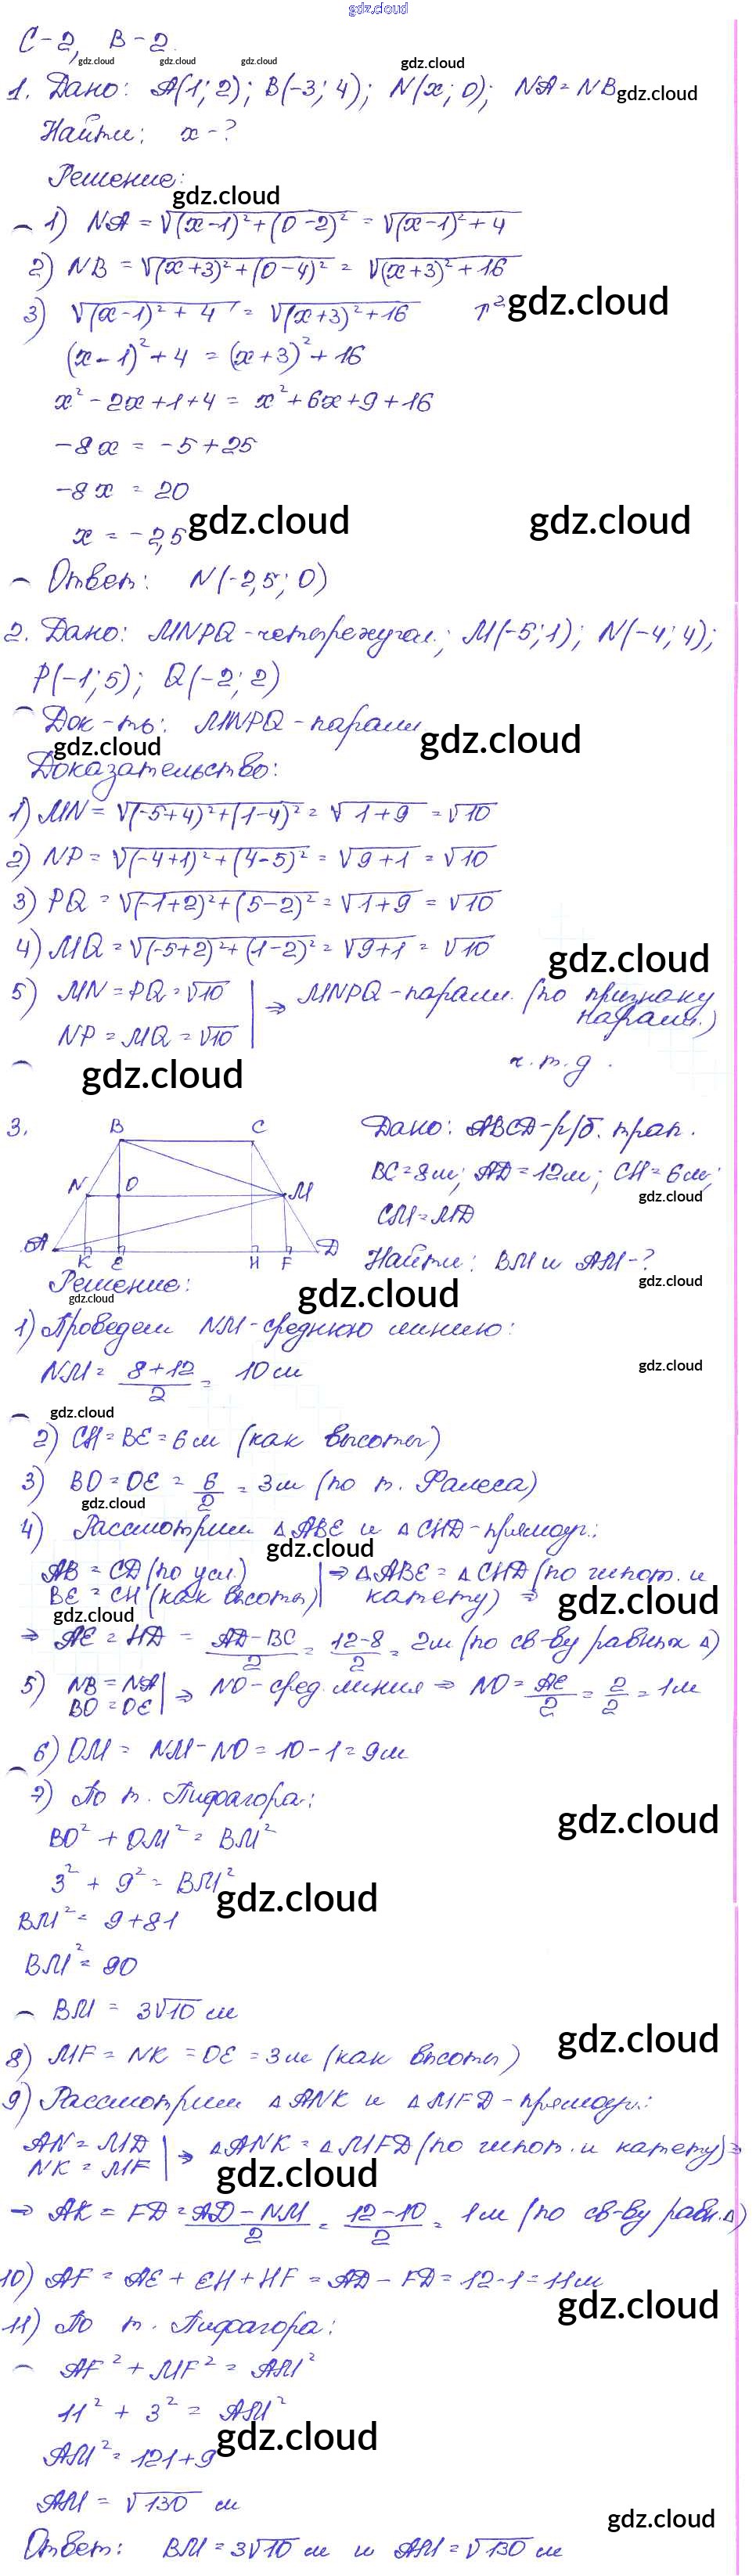 gdz.cloud
С-2, В-2.
gdz.cloud gdz.cloud gdz.cloud gdz.cloud
1. Дано: A(1; 2); B(-3; 4); N(x; 0); NA = NB gdz.cloud
Найти: x - ?
Решение:
gdz.cloud
1) NA = √(x-1)²+(0-2)² = √(x-1)²+4
2) NB = √(x+3)²+(0-4)² = √(x+3)²+16
3) √(x-1)²+4 = √(x+3)²+16 ↑² gdz.cloud
(x-1)²+4 = (x+3)²+16
x²-2x+1+4 = x²+6x+9+16
-8x = -5+25
-8x = 20
x = -2,5 gdz.cloud gdz.cloud
Ответ: N(-2,5; 0)
2. Дано: MNPQ - четырехугол.; M(-5; 1); N(-4; 4);
P(-1; 5); Q(-2; 2)
Док-ть: MNPQ - паралл. gdz.cloud
gdz.cloud
Доказательство:
1) MN = √(-5+4)²+(1-4)² = √1+9 = √10
2) NP = √(-4+1)²+(4-5)² = √9+1 = √10
3) PQ = √(-1+2)²+(5-2)² = √1+9 = √10
4) MQ = √(-5+2)²+(1-2)² = √9+1 = √10
gdz.cloud
5) MN = PQ = √10 | ⇒ MNPQ - паралл. (по признаку
NP = MQ = √10 | паралл.)
gdz.cloud ч.т.д.
3. B C Дано: ABCD - р/б. трап.
N O M BC = 8 см; AD = 12 см; CH = 6 см;
gdz.cloud
CM = MD
A K E H F D Найти: BM и AM - ?
gdz.cloud
Решение: gdz.cloud
gdz.cloud
1) Проведем NM - среднюю линию:
NM = 8+12/2 = 10 см gdz.cloud
gdz.cloud
2) CH = BE = 6 см (как высоты)
3) BO = OE = 6/2 = 3 см (по т. Фалеса)
gdz.cloud
4) Рассмотрим △ABE и △CHD - прямоуг.:
gdz.cloud
AB = CD (по усл.) | ⇒ △ABE = △CHD (по гипот. и
BE = CH (как высоты) | катету) ⇒ gdz.cloud
gdz.cloud
⇒ AE = HD = AD-BC/2 = 12-8/2 = 2 см (по св-ву равных △)
5) NB = NA | ⇒ NO - сред. линия ⇒ NO = AE/2 = 2/2 = 1 см
BO = OE |
6) OM = NM - NO = 10 - 1 = 9 см
7) По т. Пифагора: gdz.cloud
BO² + OM² = BM²
3² + 9² = BM² gdz.cloud
BM² = 9+81
BM² = 90
BM = 3√10 см
gdz.cloud
8) MF = NK = OE = 3 см (как высоты)
9) Рассмотрим △ANK и △MFD - прямоуг.:
AN = MD | ⇒ △ANK = △MFD (по гипот. и катету) ⇒
NK = MF | gdz.cloud
⇒ AK = FD = AD-NM/2 = 12-10/2 = 1 см (по св-ву равн. △)
10) AF = AE + EH + HF = AD - FD = 12-1 = 11 см
gdz.cloud
11) По т. Пифагора:
AF² + MF² = AM²
11² + 3² = AM²
gdz.cloud
AM² = 121+9
AM = √130 см
gdz.cloud
Ответ: BM = 3√10 см и AM = √130 см